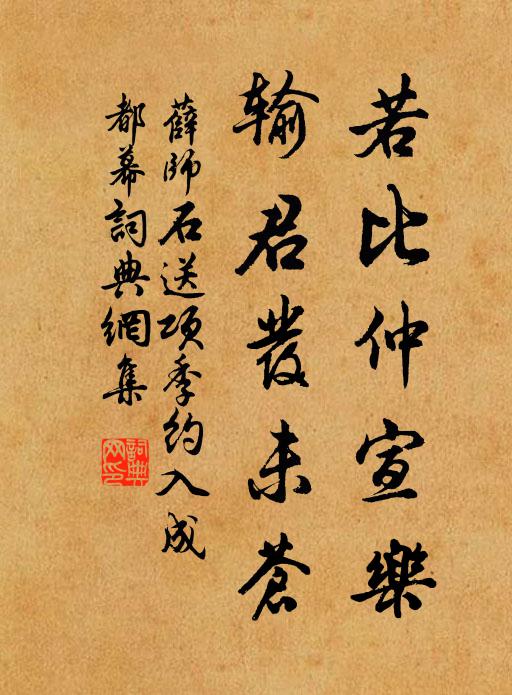 若比仲宣樂
輸君發未蒼
薛師石送項季約入成
都幕詞典網集
詞典
网印